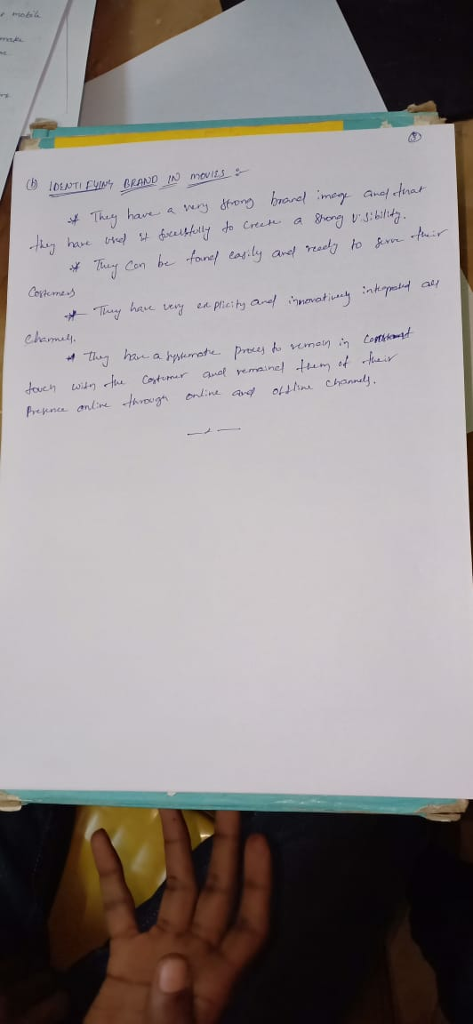 mobile
make
(b) IDENTIFYING BRAND IN MOVIES :-
* They have a very strong brand image and that
they have used it sucessfully to create a strong visibility.
* They can be found easily and ready to serve their
Costomers
* They have very explicity and innovatively integrated all
Channels.
* They have a systematic proces to remain in
touch with the Costomer and remained them of their
Presence online through online and offline channels.